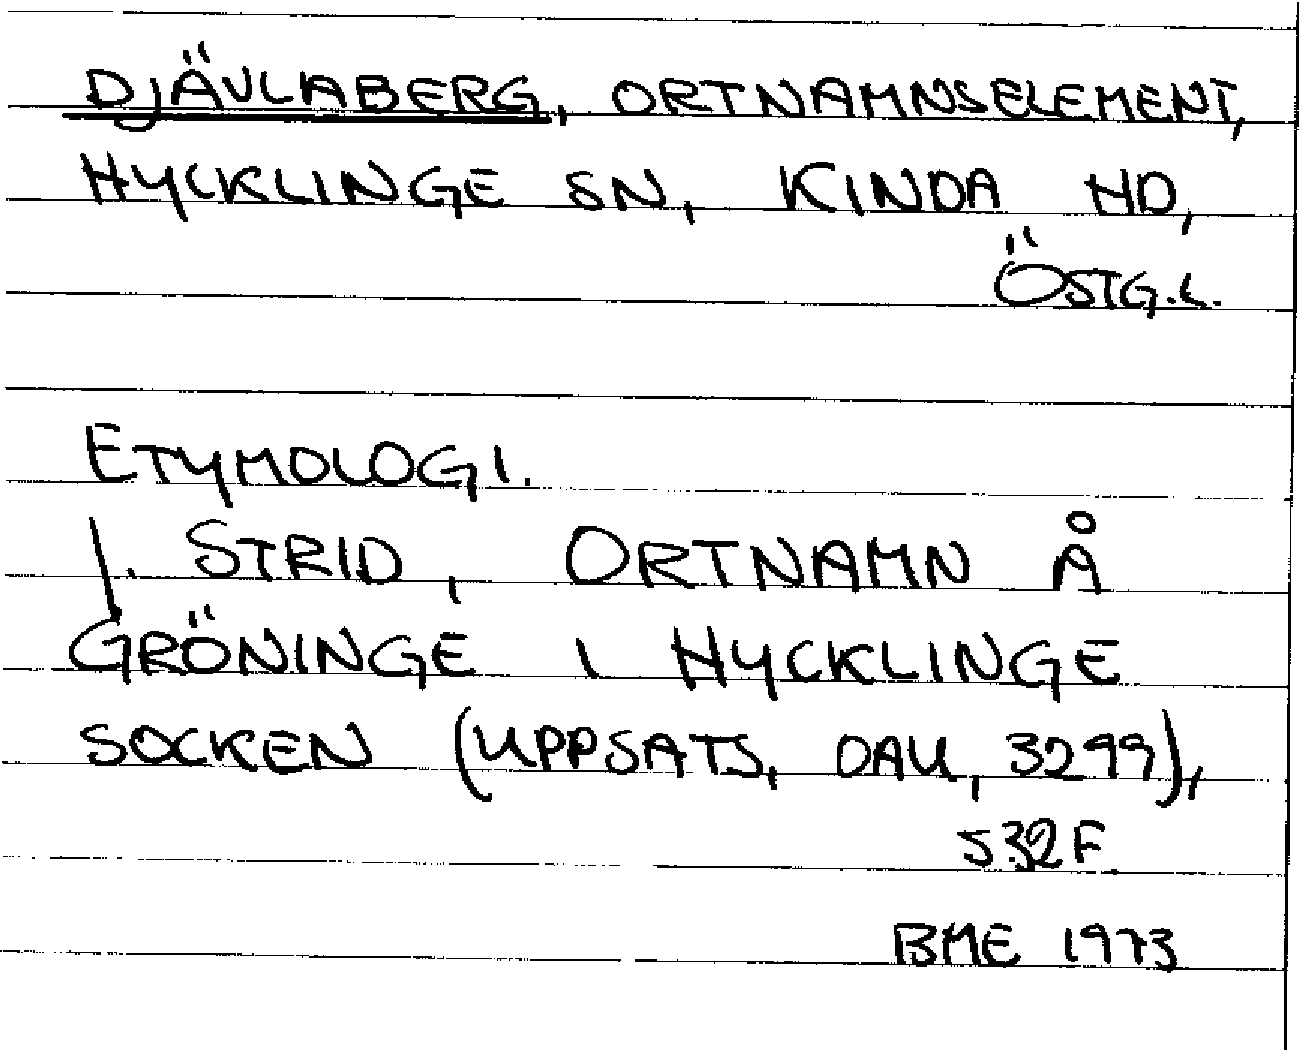 DJÄVLABERG, ORTNAMNSELEMENT,
HYCKLINGE SN, KINDA HD,
ÖSTG.L.
ETYMOLOGI.
J. STRID, ORTNAMN Å
GRÖNINGE I HYCKLINGE
SOCKEN (UPPSATS, OAU, 3299),
S 32 F
BME 1973